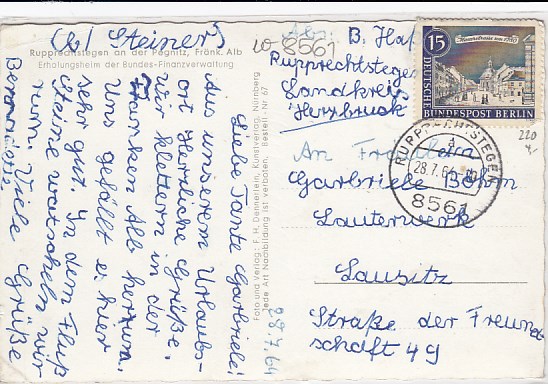 Rupprechtstegen an der Pegnitz, Fränk. Alb
Erholungsheim der Bundes-Finanzverwaltung
(b/ Steiner)
28.7.64
Liebe Tante Garbriele!
Aus unserem Urlaubs-
ort Herrliche Grüße.
Wir klettern in der
Franken Alb herrum.
Uns gefällt es hier
sehr gut. In dem Fluß
Steine watscheln wir
rum. Viele Grüße
Foto und Verlag: F. H. Dennerlein, Kunstverlag, Nürnberg
Jede Art Nachbildung ist verboten. Bestell. Nr. 67
Abs: B. Haf
10-8561
Rupprechtstegen
Landkreis
Hersbruck
15
DEUTSCHE
BUNDESPOST BERLIN
RUPPRECHTSTEGEN
a
28.7.64
8561
220
An Fräulein
Garbriele Böhm
Lauterwerk
Lausitz
Straße der Freund
schaft 49